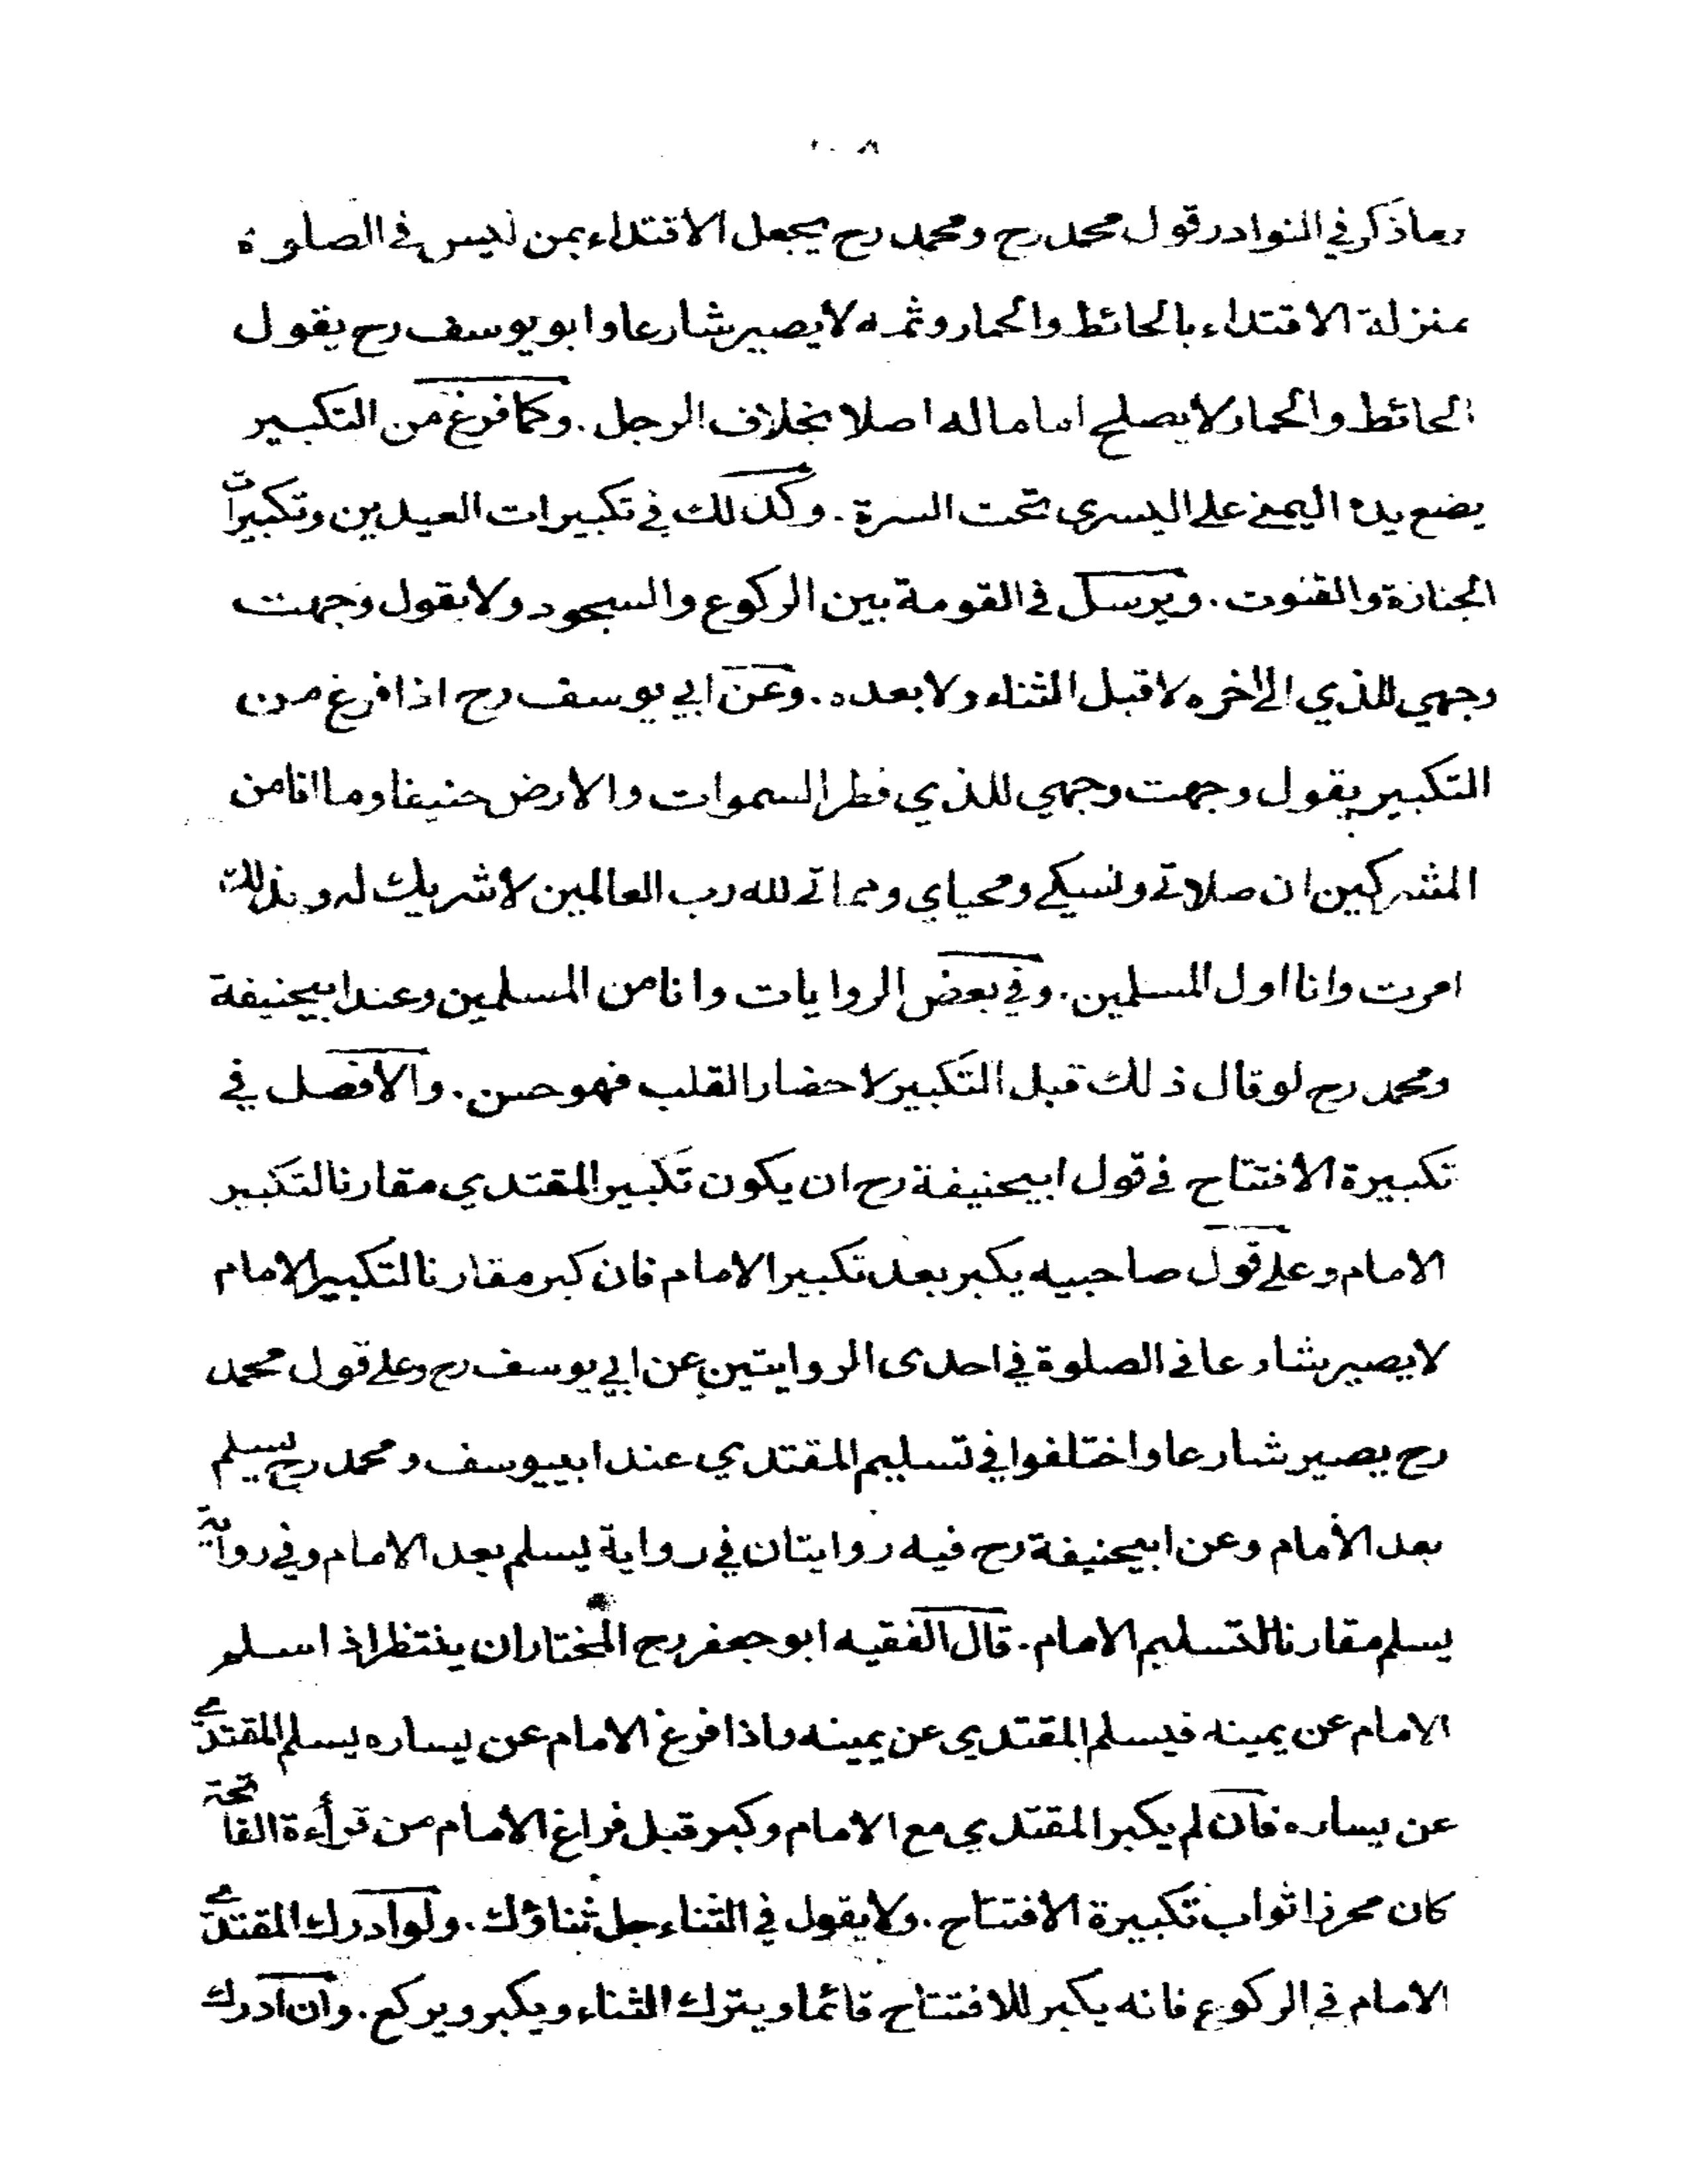 ١٠٨
وماذكر في النوادر قول محمد رح ومحمد رح يجعل الاقتداء بمن ليس في الصلوة
بمنزلة الاقتداء بالحائط والحمار وثمه لا يصير شارعا وابو يوسف رح يقول
الحائط والحمار لا يصلح اماما له اصلا بخلاف الرجل. وكما فرغ من التكبير
يضع يده اليمنى على اليسرى تحت السرة. وكذلك في تكبيرات العيدين وتكبيرات
الجنازة والقنوت. ويرسل في القومة بين الركوع والسجود ولا يقول وجهت
وجهي للذي الى اخره لا قبل الثناء ولا بعده. وعن ابي يوسف رح اذا فرغ من
التكبير يقول وجهت وجهي للذي فطر السموات والارض حنيفا وما انا من
المشركين ان صلاتي ونسكي ومحياي ومماتي لله رب العالمين لا شريك له وبذلك
امرت وانا اول المسلمين. وفي بعض الروايات وانا من المسلمين وعند ابيحنيفة
ومحمد رح لو قال ذلك قبل التكبير لاحضار القلب فهو حسن. والافضل في
تكبيرة الافتتاح في قول ابيحنيفة رح ان يكون تكبير المقتدي مقارنا لتكبير
الامام وعلى قول صاحبيه يكبر بعد تكبير الامام فان كبر مقارنا لتكبير الامام
لا يصير شارعا في الصلوة في احدى الروايتين عن ابي يوسف رح وعلى قول محمد
رح يصير شارعا واختلفوا في تسليم المقتدي عند ابييوسف ومحمد رح يسلم
بعد الامام وعن ابيحنيفة رح فيه روايتان في رواية يسلم بعد الامام وفي رواية
يسلم مقارنا لتسليم الامام. قال الفقيه ابو جعفر رح المختار ان ينتظر اذا سلم
الامام عن يمينه فيسلم المقتدي عن يمينه واذا فرغ الامام عن يساره يسلم المقتدي
عن يساره فان لم يكبر المقتدي مع الامام وكبر قبل فراغ الامام من قرأءة الفاتحة
كان محرزا ثواب تكبيرة الافتتاح. ولا يقول في الثناء جل ثناؤك. ولو ادرك المقتدي
الامام في الركوع فانه يكبر للافتتاح قائما ويترك الثناء ويكبر ويركع. وان ادرك